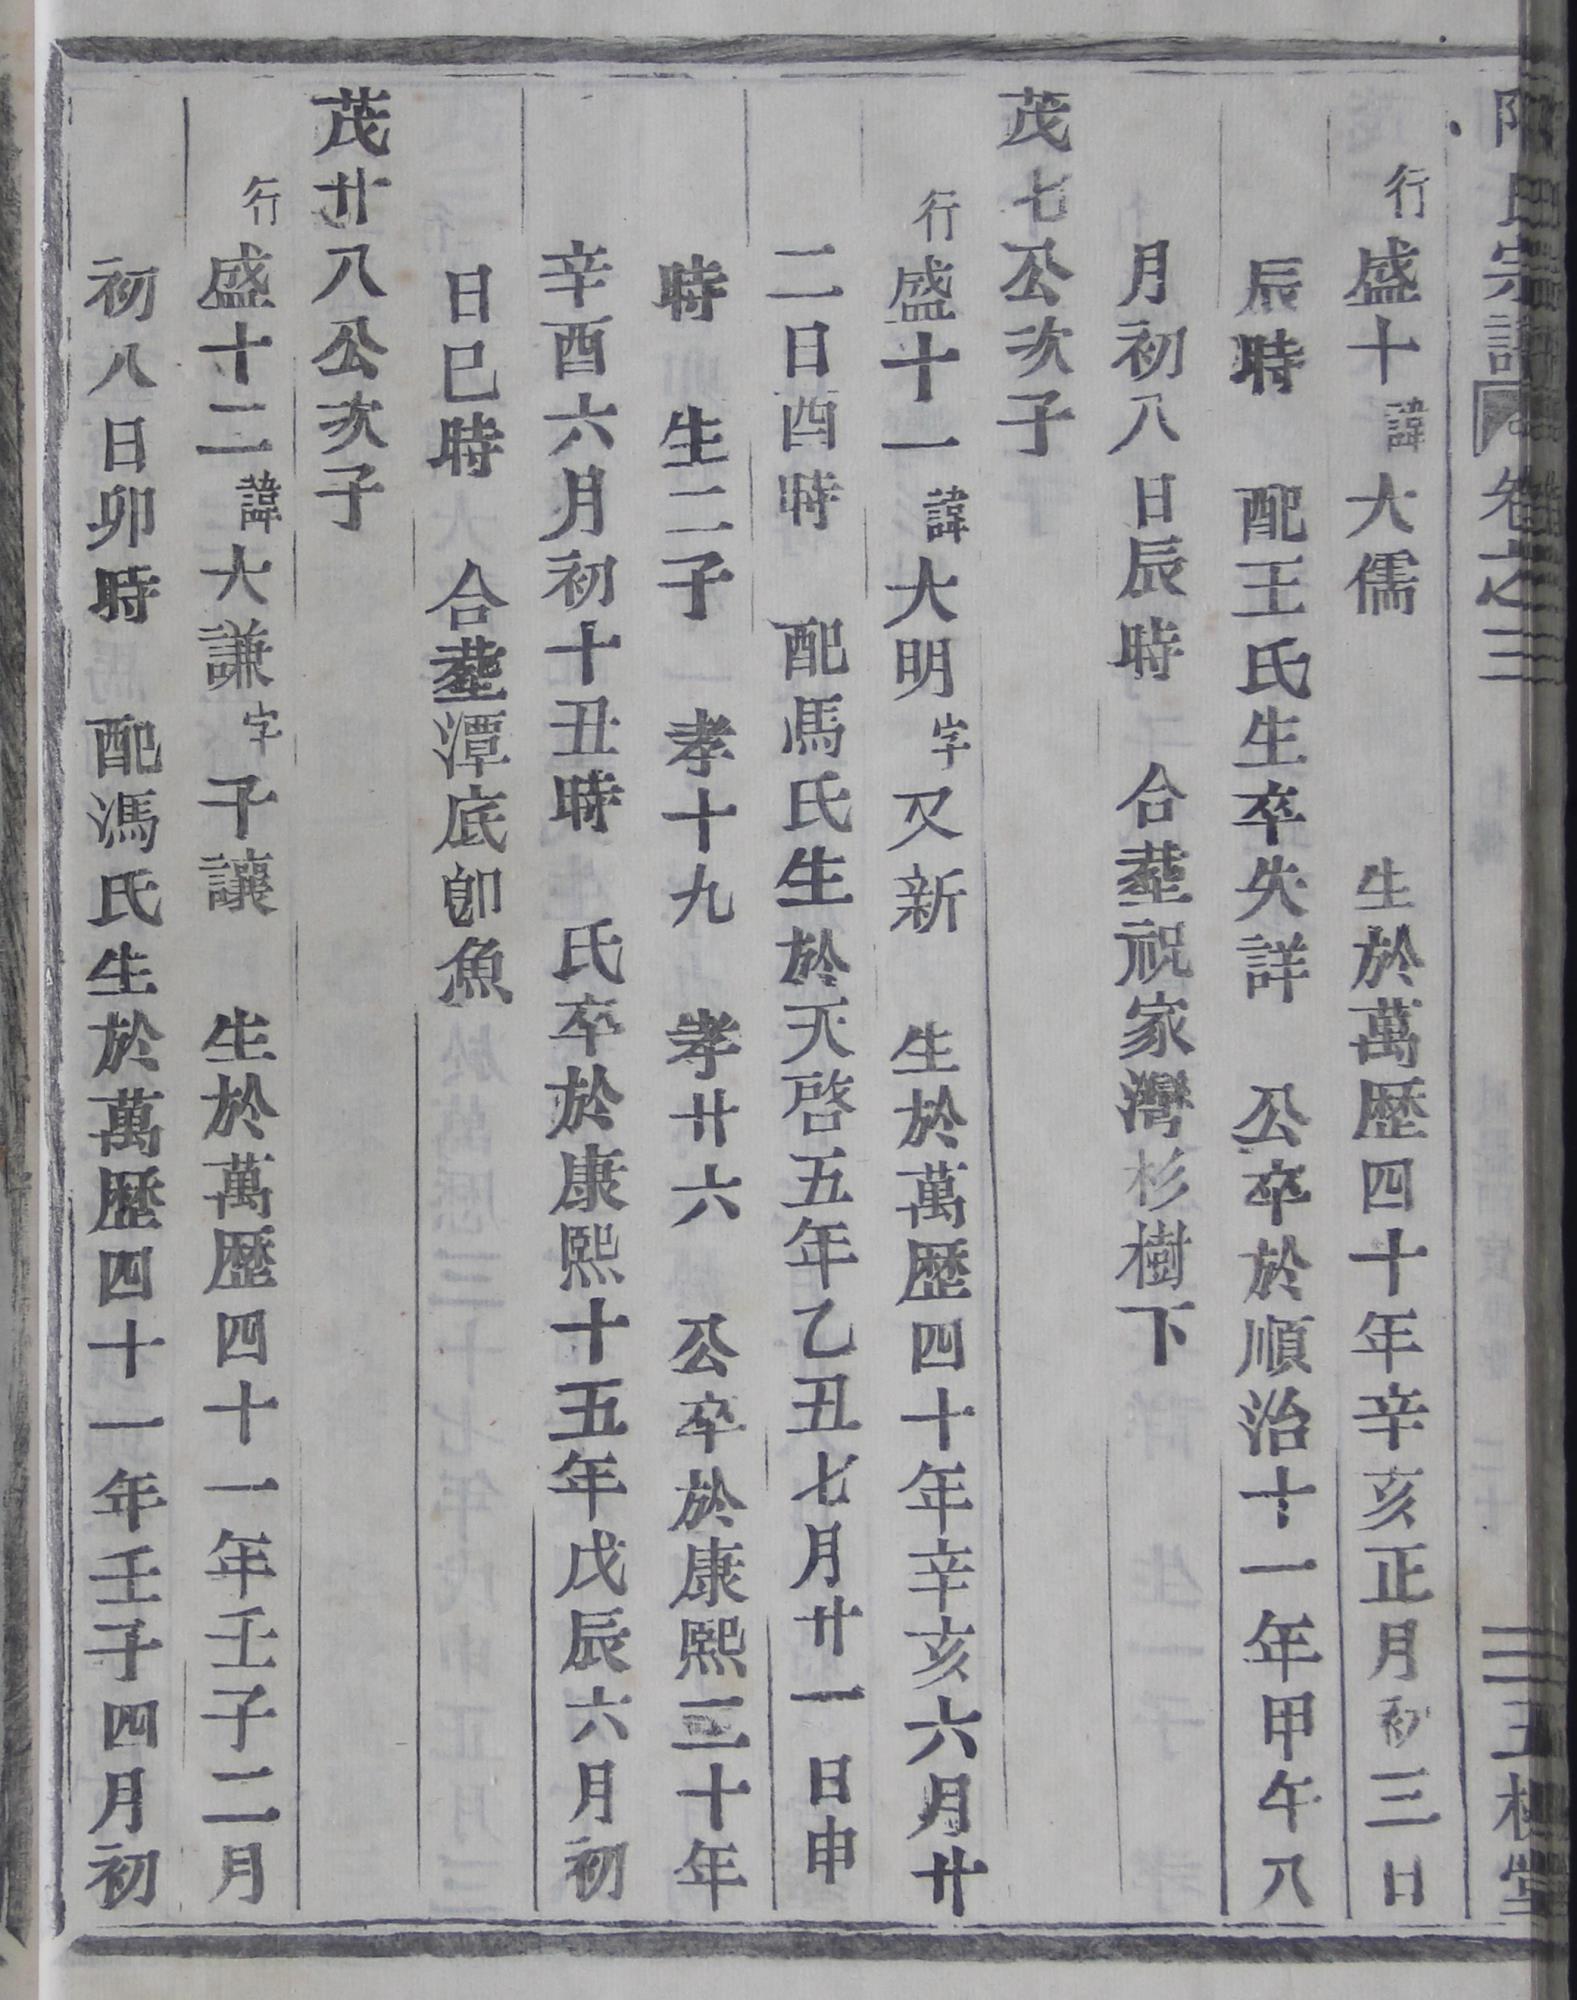 氏宗譜 卷之三 三 五 堂
行盛十諱大儒 生於萬歷四十年辛亥正月初三日
辰時 配王氏生卒失詳 公卒於順治十一年甲午八
月初八日辰時 合塟祝家灣杉樹下
茂七公次子
行盛十一諱大明字又新 生於萬歷四十年辛亥六月廿
二日酉時 配馮氏生於天啓五年乙丑七月廿一日申
時 生二子 孝十九 孝廿六 公卒於康熙三十年
辛酉六月初十丑時 氏卒於康熙十五年戊辰六月初
日巳時 合塟潭底卽魚
茂廿八公次子
行盛十二諱大謙字子讓 生於萬歷四十一年壬子二月
初八日卯時 配馮氏生於萬歷四十一年壬子四月初